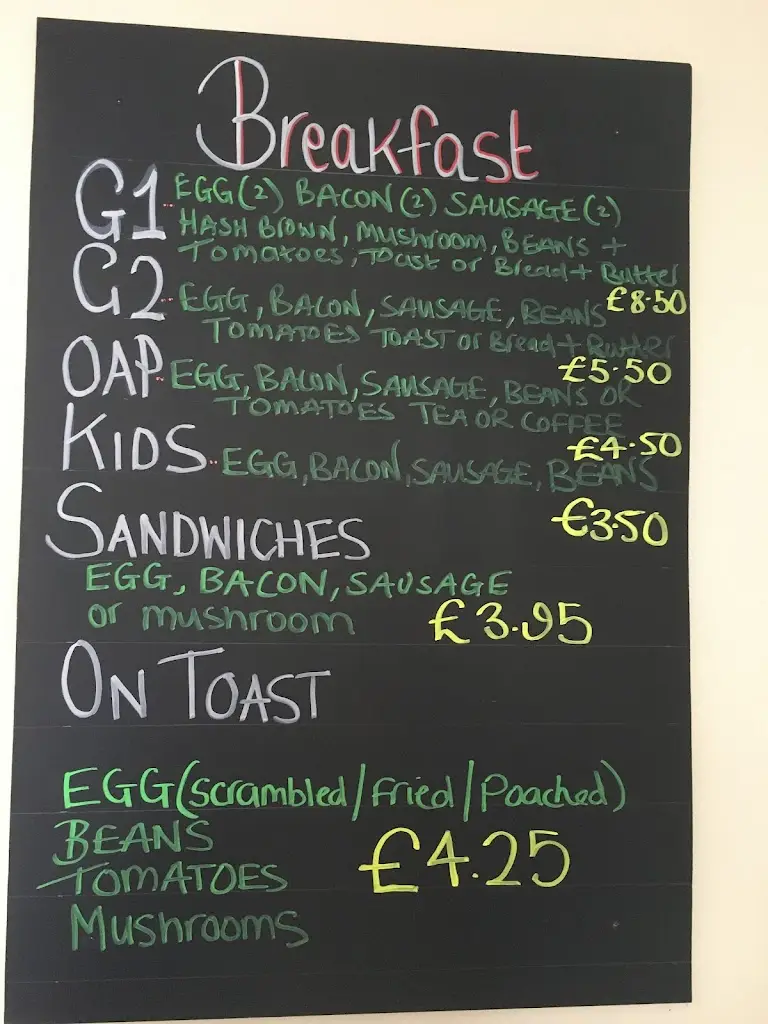 Breakfast
G1.. EGG(2) BACON(2) SAUSAGE(2)
HASH BROWN, MUSHROOM, BEANS +
Tomatoes, Toast or Bread + Butter
£8.50
G2.. EGG, BACON, SAUSAGE, BEANS
TOMATOES TOAST or Bread + Butter
£5.50
OAP.. EGG, BACON, SAUSAGE, BEANS OR
TOMATOES TEA OR COFFEE
£4.50
KIDS.. EGG, BACON, SAUSAGE, BEANS
£3.50
SANDWICHES
EGG, BACON, SAUSAGE
or mushroom £3.95
ON TOAST
EGG(Scrambled/Fried/Poached)
BEANS
TOMATOES £4.25
Mushrooms